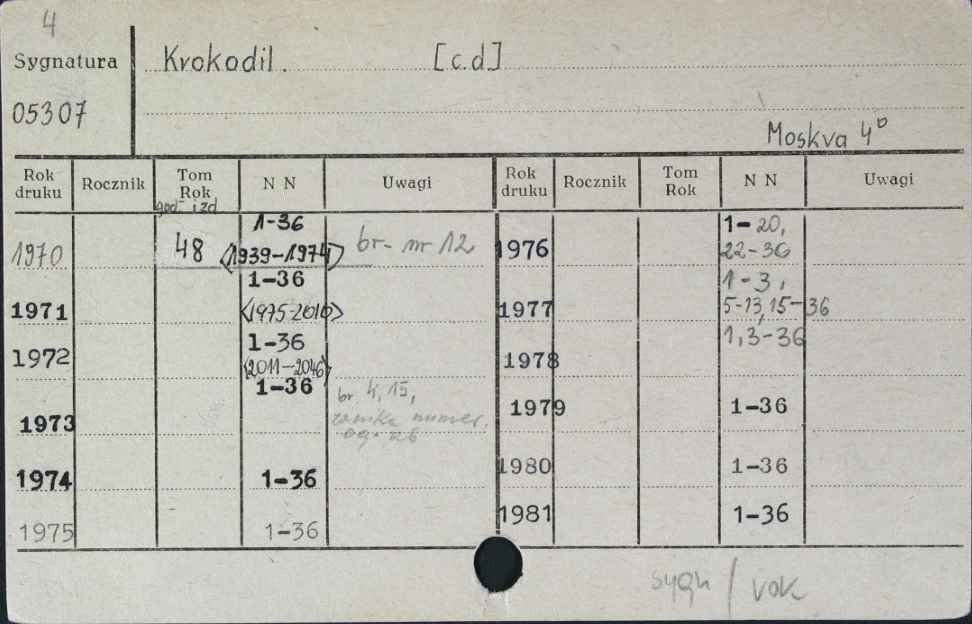 4
Sygnatura Krokodil. [c.d]
05307
Moskva 4°
Rok druku Rocznik Tom Rok N N Uwagi Rok druku Rocznik Tom Rok N N Uwagi
god izd
1970 48 1-36 <1939-1974> br- nr 12
1971 1-36 <1975-2010>
1972 1-36 <2011-2046>
1973 1-36 br 4, 15,
numer.
og. 26
1974 1-36
1975 1-36
1976 1-20, 22-36
1977 1-3, 5-13, 15-36
1978 1, 3-36
1979 1-36
1980 1-36
1981 1-36
sygn / vok